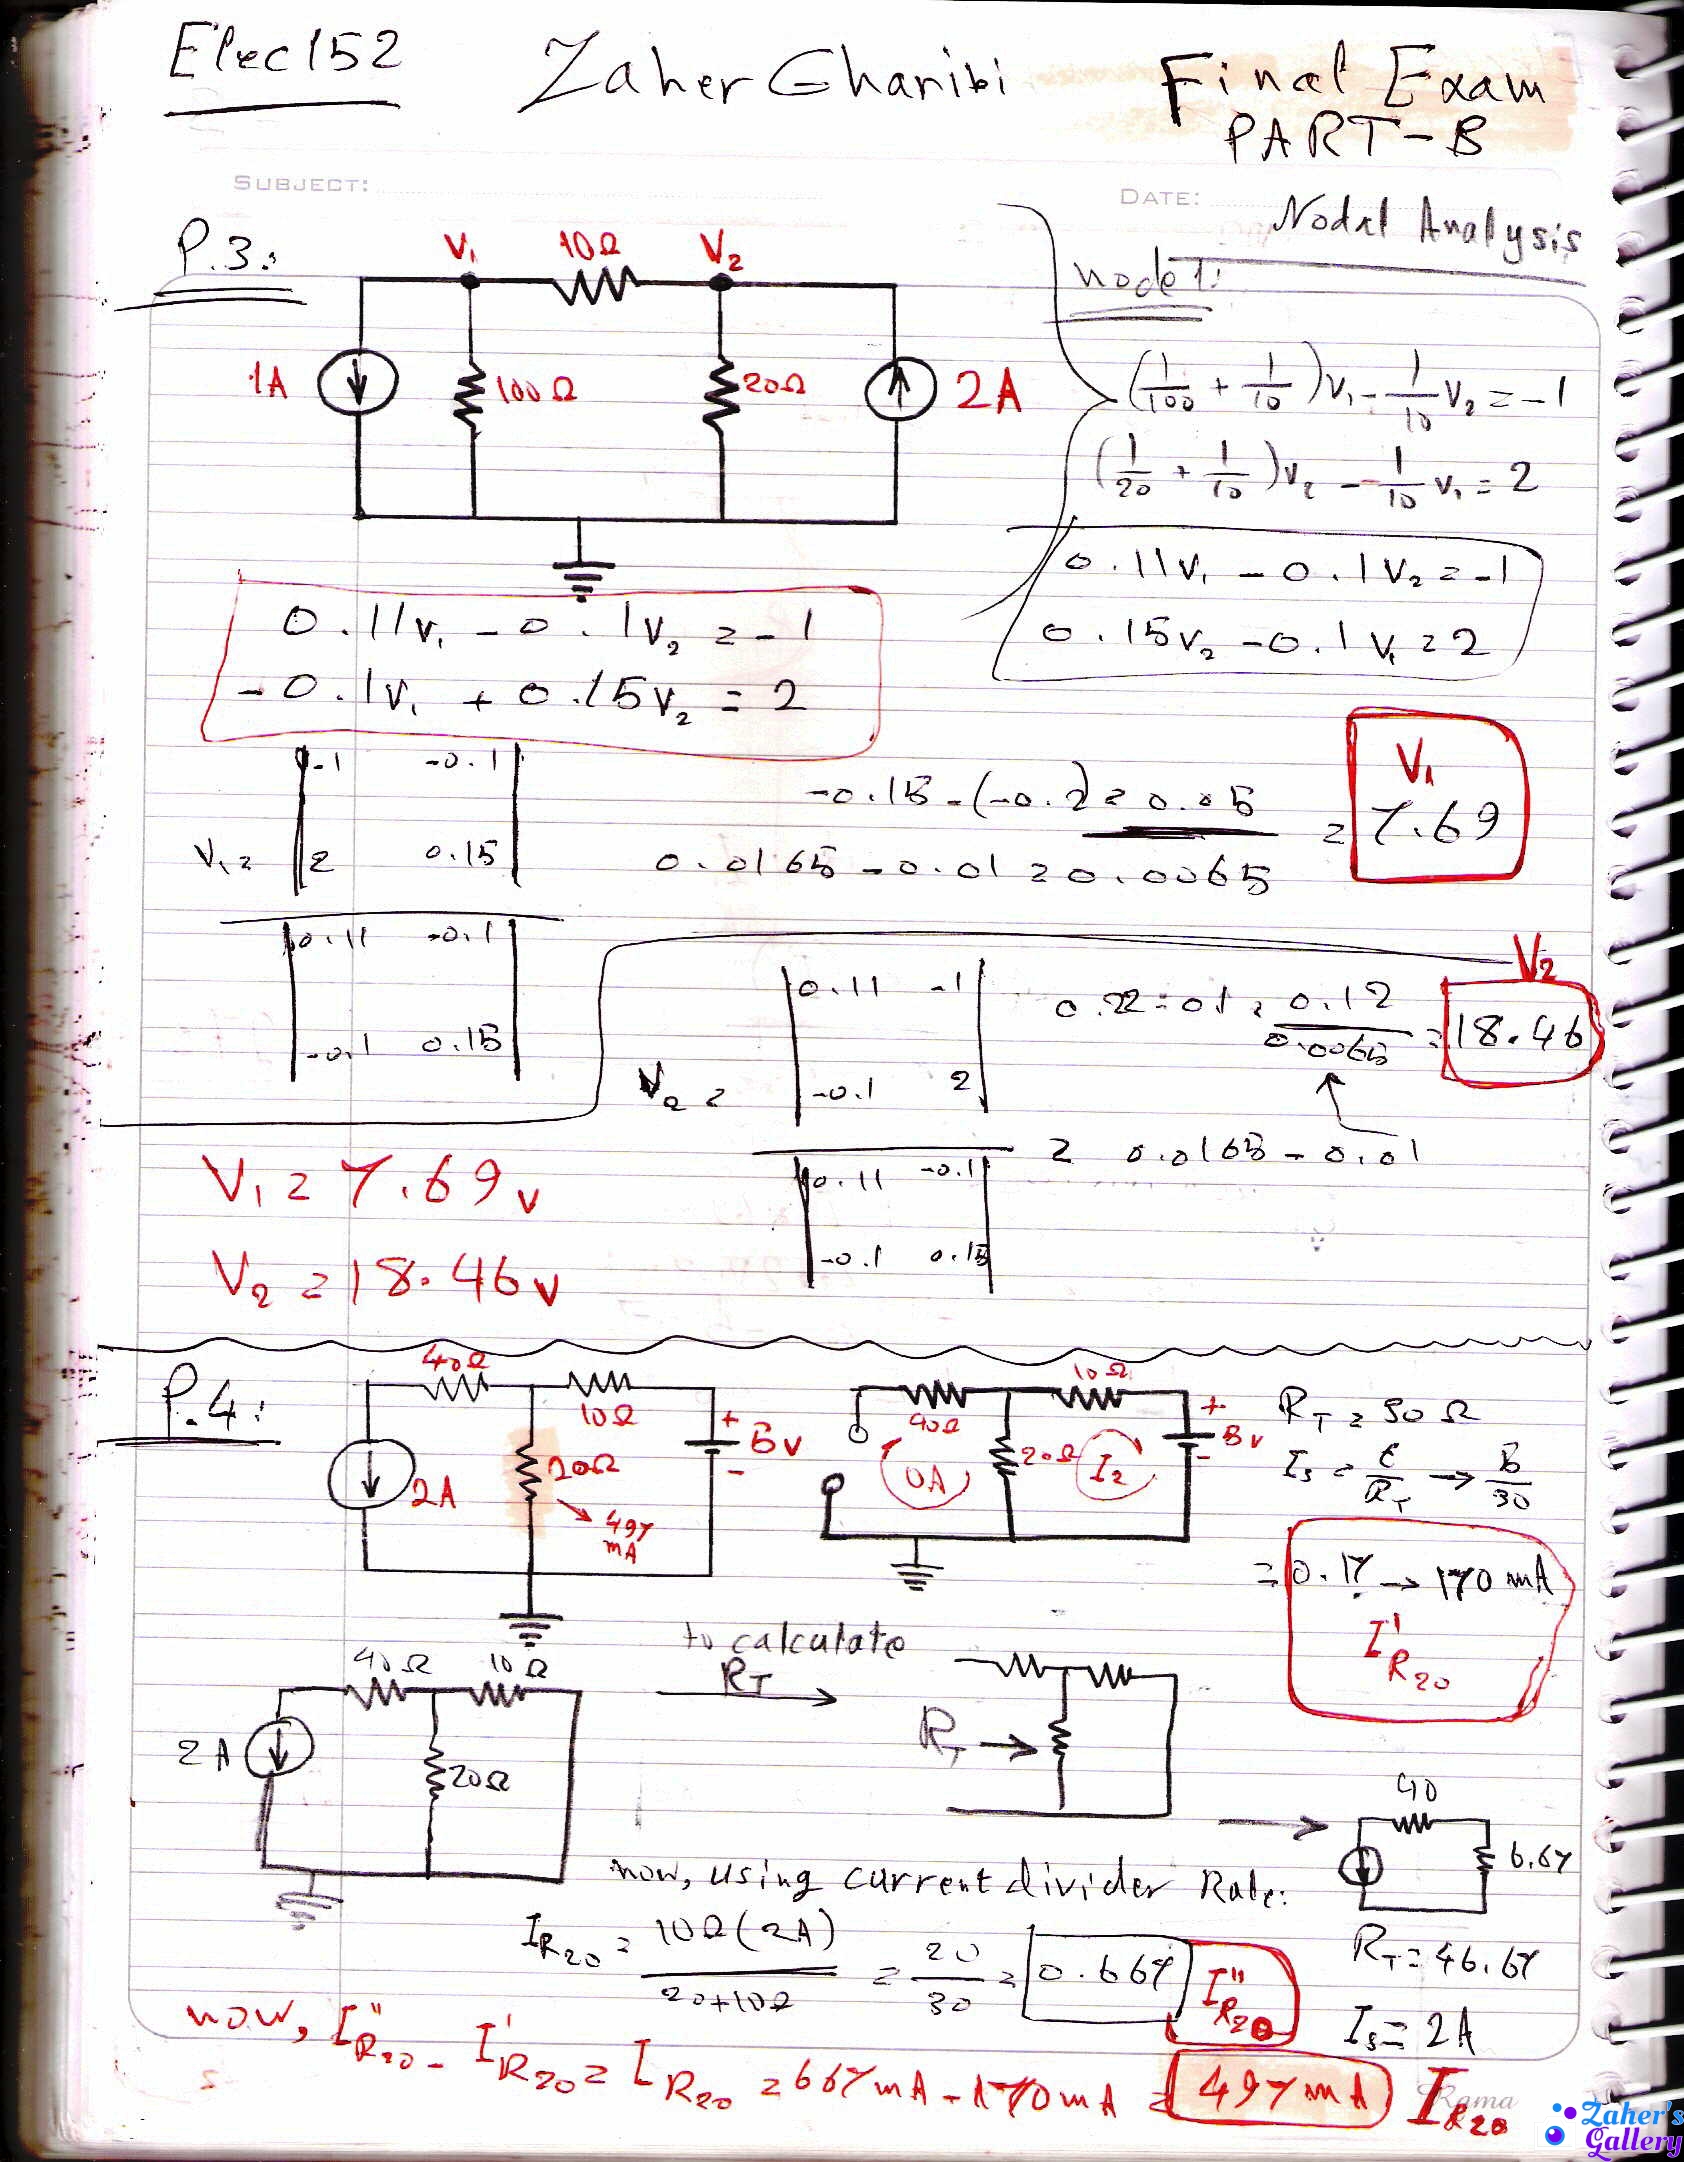 Elec152
Zaher Gharibi
Final Exam
PART-B
SUBJECT:
DATE:
Nodal Analysis
P.3:
V₁ 10Ω V₂
1A 100Ω 20Ω 2A
node 1:
(1/100 + 1/10)V₁ - 1/10 V₂ = -1
(1/20 + 1/10)V₂ - 1/10 V₁ = 2
0.11V₁ - 0.1V₂ = -1
0.15V₂ - 0.1V₁ = 2
0.11V₁ - 0.1V₂ = -1
-0.1V₁ + 0.15V₂ = 2
V₁ =
-1 -0.1
2 0.15
0.11 -0.1
-0.1 0.15
-0.15 - (-0.2) = 0.05
0.0165 - 0.01 = 0.0065
= V₁ 7.69
V₂ =
0.11 -1
-0.1 2
0.11 -0.1
-0.1 0.15
0.22 - 0.1 = 0.12
0.0065
= V₂ 18.46
= 0.0165 - 0.01
V₁ = 7.69 v
V₂ = 18.46 v
P.4:
40Ω 10Ω
2A 20Ω 5v
+
-
497 mA
40Ω 10Ω
0A 20Ω I₂ 5v
+
-
R_T = 30Ω
I_s = E/R_T → 5/30
= 0.17 → 170 mA
I'R₂₀
40Ω 10Ω
2A 20Ω
to calculate
R_T
R_T →
40
6.67
now, using current divider Rule:
I_R20 = 10Ω(2A) / 20+10Ω = 20/30 = 0.667 I''R20
R_T = 46.67
I_s = 2A
now, I''R20 - I'R20 = I_R20 = 667mA - 170mA = 497mA I_R20
Rama
Zaher's
Gallery